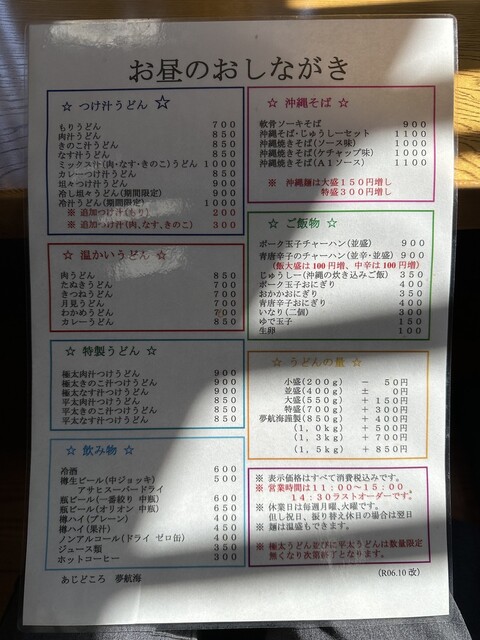 お昼のおしながき
☆ つけ汁うどん ☆
もりうどん 700
肉汁うどん 850
きのこ汁うどん 850
なす汁うどん 850
ミックス汁(肉・なす・きのこ)うどん 1000
カレーつけ汁うどん 850
坦々つけ汁うどん 900
冷し坦々うどん(期間限定) 900
冷汁うどん(期間限定) 1000
※ 追加つけ汁(もり) 200
※ 追加つけ汁(肉、なす、きのこ) 300
☆ 温かいうどん ☆
肉うどん 850
たぬきうどん 700
きつねうどん 700
月見うどん 700
わかめうどん 700
カレーうどん 850
☆ 特製うどん ☆
極太肉汁つけうどん 900
極太きのこ汁つけうどん 900
極太なす汁つけうどん 900
平太肉汁つけうどん 850
平太きのこ汁つけうどん 850
平太なす汁つけうどん 850
☆ 飲み物 ☆
冷酒 600
樽生ビール(中ジョッキ) 500
アサヒスーパードライ
瓶ビール(一番絞り 中瓶) 600
瓶ビール(オリオン 中瓶) 650
樽ハイ(プレーン) 400
樽ハイ(果汁) 450
ノンアルコール(ドライ ゼロ缶) 400
ジュース類 350
ホットコーヒー 300
あじどころ 夢航海
☆ 沖縄そば ☆
軟骨ソーキそば 900
沖縄そば・じゅうしーセット 1100
沖縄焼きそば(ソース味) 1000
沖縄焼きそば(ケチャップ味) 1000
沖縄焼きそば(A1ソース) 1100
※ 沖縄麺は大盛150円増し
特盛300円増し
☆ ご飯物 ☆
ポーク玉子チャーハン(並盛) 900
青唐辛子のチャーハン(並辛・並盛) 900
(飯大盛は100円増、中辛は100円増)
じゅうしー(沖縄の炊き込みご飯) 350
ポーク玉子おにぎり 400
おかかおにぎり 350
青唐辛子おにぎり 400
いなり(二個) 300
ゆで玉子 150
生卵 100
☆ うどんの量 ☆
小盛(200g) － 50円
並盛(400g) ± 0円
大盛(550g) ＋ 150円
特盛(700g) ＋ 300円
夢航海謹製(850g) ＋ 400円
(1,0kg) ＋ 500円
(1,3kg) ＋ 700円
(1,5kg) ＋ 850円
※ 表示価格はすべて消費税込みです。
※ 営業時間は11:00～15:00
14:30ラストオーダーです。
※ 休業日は毎週月曜、火曜です。
但し祝日、振り替え休日の場合は翌日
※ 麺は温盛もできます。
※ 極太うどん並びに平太うどんは数量限定
無くなり次第終了となります。
(R06.10 改)